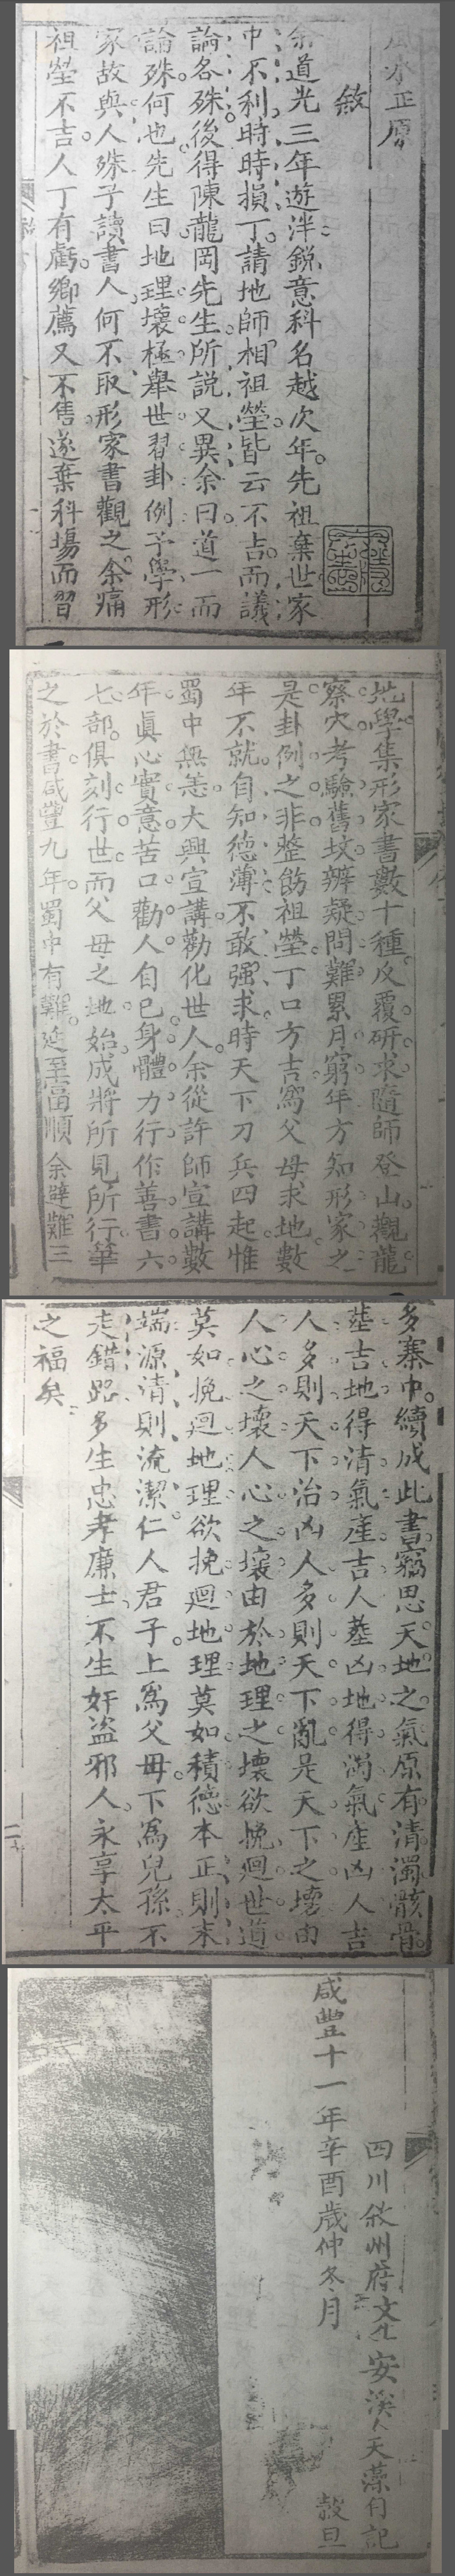 風水正原
敘
余道光三年遊泮銳意科名越次年先祖棄世家
中不利時時損丁請地師相祖塋皆云不吉而議
論各殊後得陳龍岡先生所説又異余曰道一而
論殊何也先生曰地理壞極舉世習卦例予學形
家故與人殊子讀書人何不取形家書觀之余痛
祖塋不吉人丁有虧鄉薦又不售遂棄科場而習
地學集形家書數十種反覆研求隨師登山觀龍
察穴考驗舊坟辨疑問難累月窮年方知形家之
是卦例之非整飭祖塋丁口方吉為父母求地數
年不就自知德薄不敢强求時天下刀兵四起惟
蜀中無恙大興宣講勸化世人余從許師宣講數
年眞心實意苦口勸人自己身體力行作善書六
七部俱刻行世而父母之地始成將所見所行筆
之於書咸豐九年蜀中有難延至富順余避難三
多寨中續成此書竊思天地之氣原有清濁骸骨
塟吉地得清氣產吉人塟凶地得濁氣產凶人吉
人多則天下治凶人多則天下亂是天下之壞由
人心之壞人心之壞由於地理之壞欲挽廻世道
莫如挽廻地理欲挽廻地理莫如積德本正則末
端源清則流潔仁人君子上為父母下為兒孫不
走錯路多生忠孝廉士不生奸盗邪人永享太平
之福矣
四川敘州府文生安溪人天藻自記
咸豐十一年辛酉歲仲冬月 穀旦